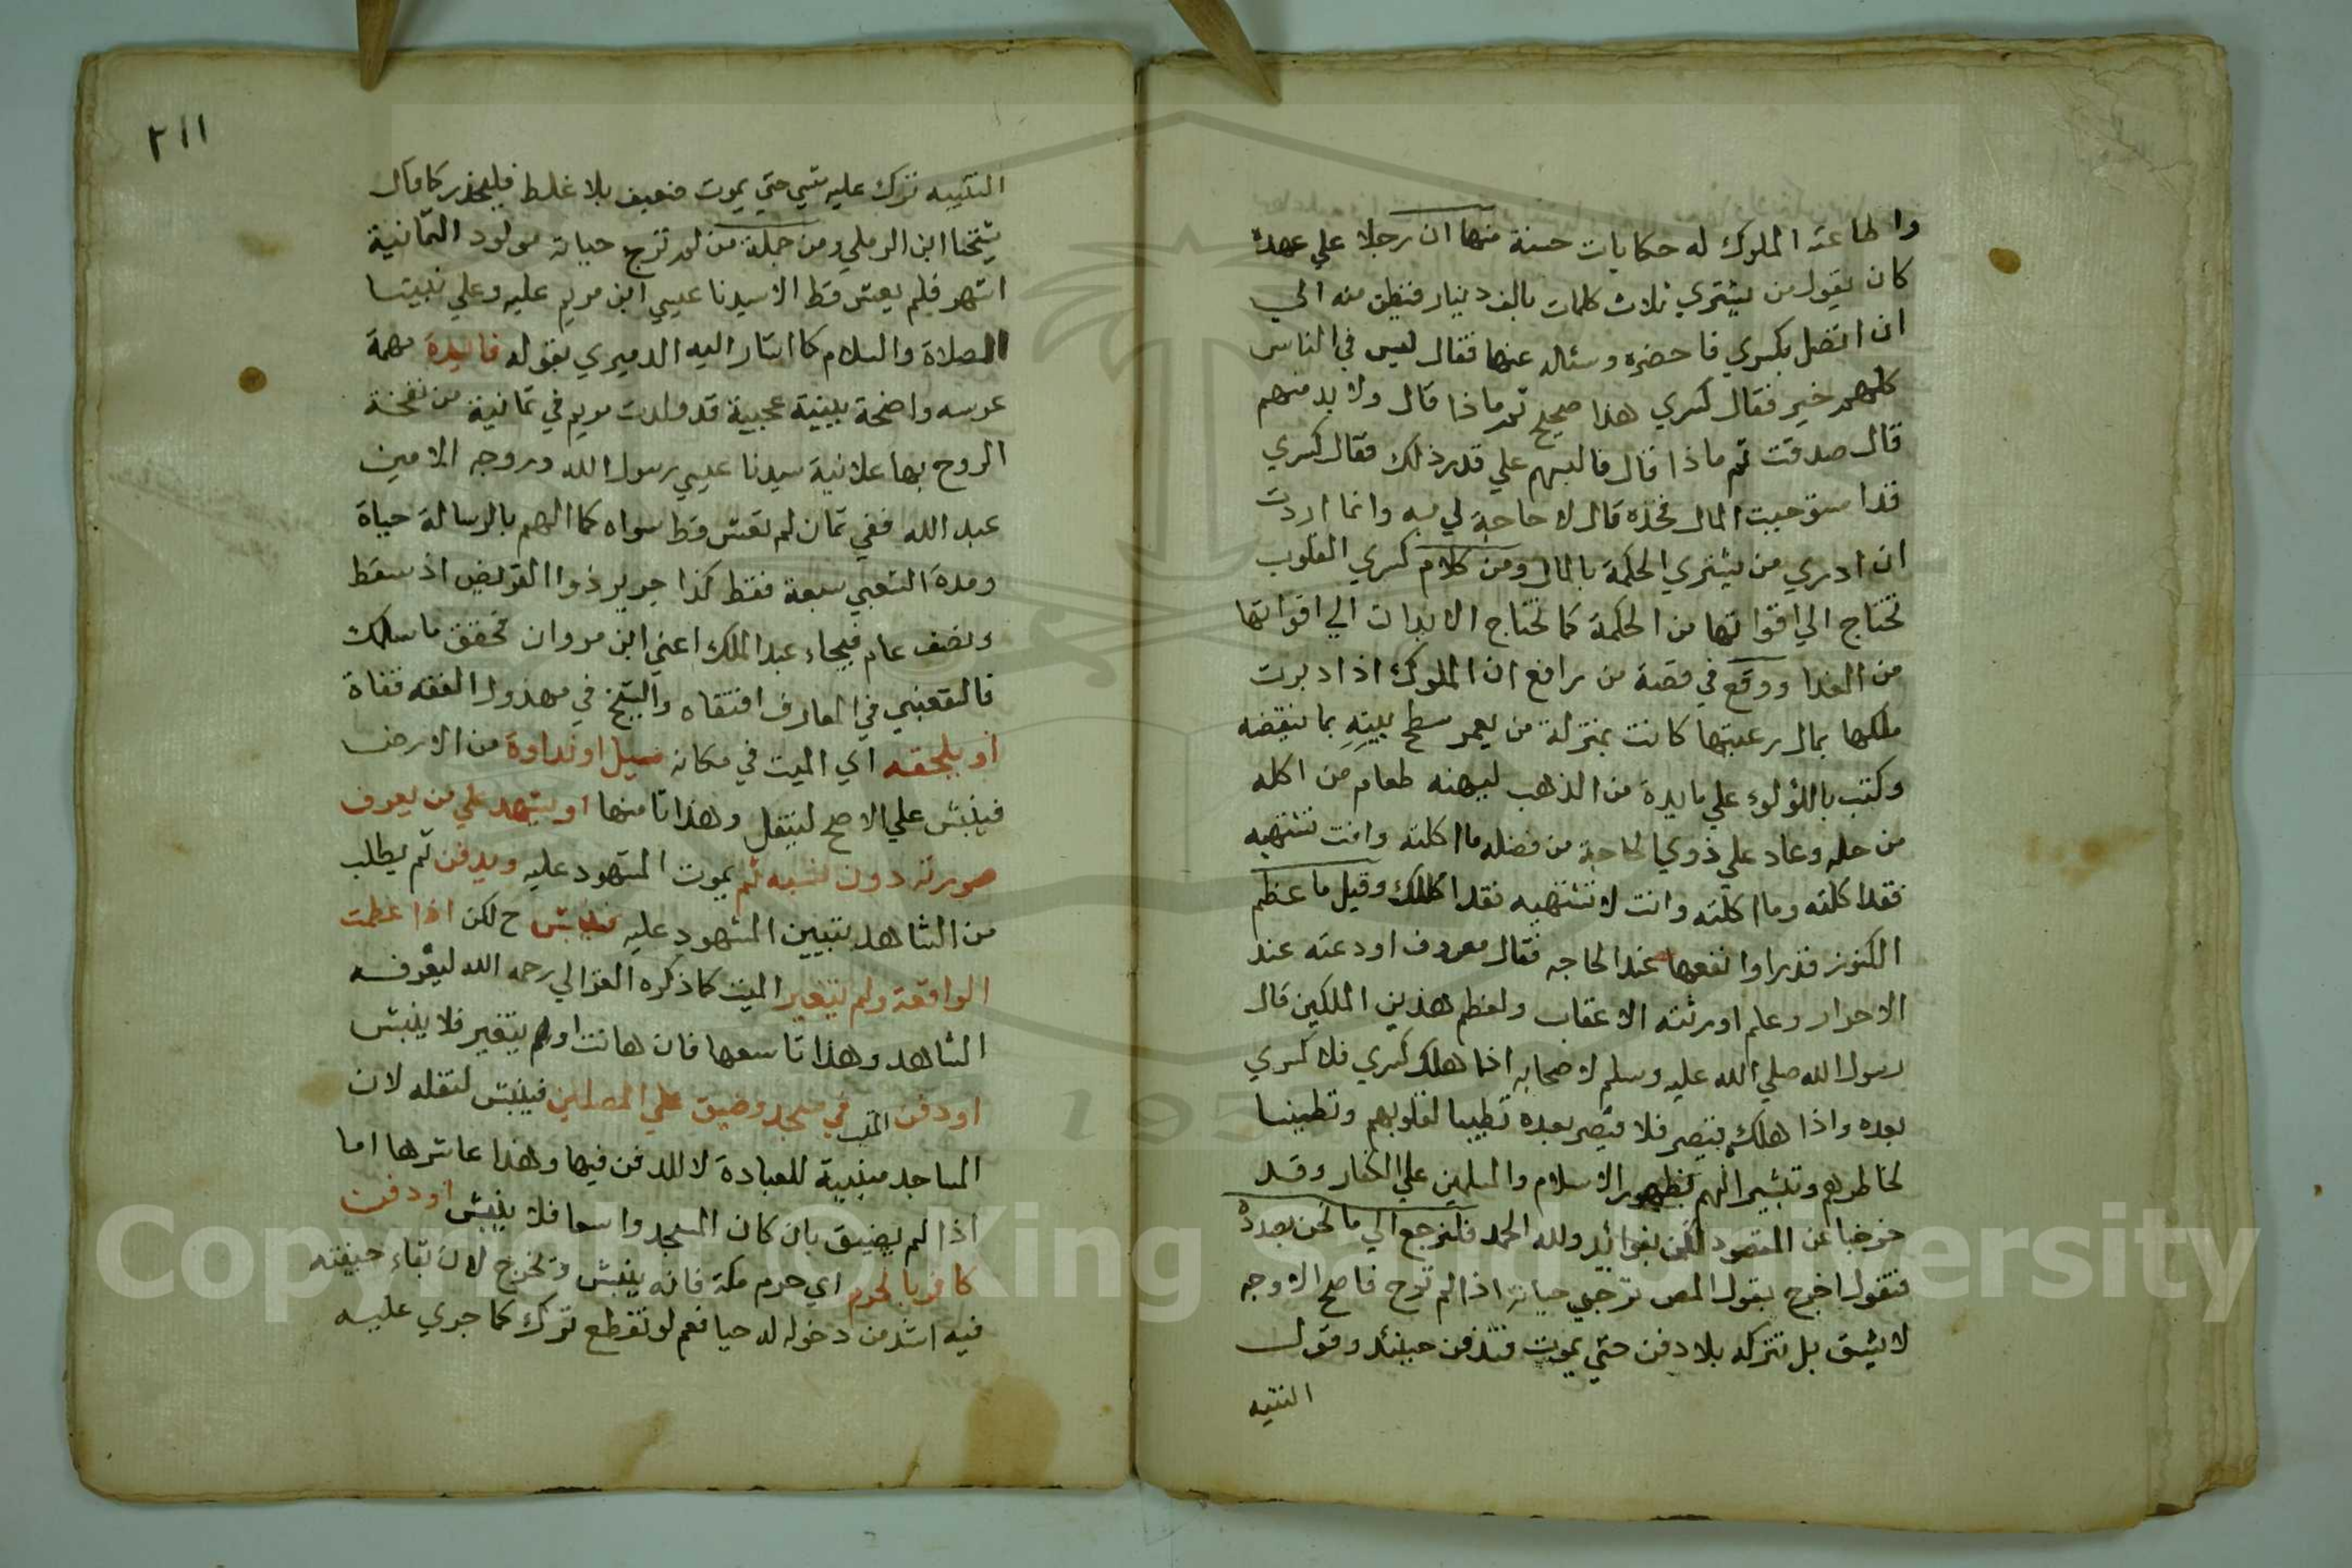 واطاعته الملوك له حكايات حسنة منها ان رجلا علي عهده
كان يقول من يشتري ثلاث كلمات بالف دينار فنظن منه الي
ان اتصل بكسري فاحضره وسئاله عنها فقال ليس في الناس
كلهم خير فقال كسري هذا صحيح ثم ماذا قال ولا بد منهم
قال صدقت ثم ماذا قال فالبسهم علي قدر ذلك فقال كسري
قد استوجبت المال فخذه قال لا حاجة لي به وانما اردت
ان ادري من يشتري الحكمة بالمال ومن كلام كسري القلوب
تحتاج الي اقواتها من الحكمة كما تحتاج الابدان الي اقواتها
من الغدا ووقع في قصة من رافع ان الملوك اذا دبرت
ملكها بمال رعيتها كانت بمنزلة من يعمر سطح بيته بما ينقضه
وكتب باللؤلوء علي مايدة من الذهب ليهنه طعام من اكله
من حله وعاد علي ذوي الحاجة من فضله ما اكلته وانت تشتهيه
فقد اكلته وما اكلته وانت لا تشتهيه فقد اكلك وقيل ما عظم
الكنوز قدرا وانفعها عند الحاجه فقال معروف اودعته عند
الاحرار وعلم اورثته الاعقاب ولعظم هذين الملكين قال
رسول الله صلي الله عليه وسلم لاصحابه اذا هلك كسري فلا كسري
بعده واذا هلك قيصر فلا قيصر بعده تطييبا لقلوبهم وتطمينا
لخاطرهم وتبشيرا لهم بظهور الاسلام والمسلمين علي الكفار وقد
خرجنا عن المقصود لكن بفوائد ولله الحمد فلنرجع الي ما نحن بصدده
فنقول اخرج بقول المص ترجي حياته اذا لم ترج فاصح الاوجه
لا يشق بل تتركه بلا دفن حتي يموت فتدفن حينئذ وقول
التنبيه
٢١١
التنبيه ترك عليه شي حتي يموت ضعيف بلا غلط فليحذر كما قال
شيخنا ابن الرملي ومن جملة من لم ترج حياته مولود الثمانية
اشهر فلم يعش قط الا سيدنا عيسي ابن مريم عليه وعلي نبينا
الصلاة والسلام كما اشار اليه الدميري بقوله فائيدة مهمة
عرسه واضحة بينية عجبية قد ولدت مريم في ثمانية من نفخة
الروح بها علانية سيدنا عيسي رسول الله وروحه الامين
عبد الله ففي ثمان لم تعش قط سواه كما الهم بالرسالة حياة
ومدة الشعبي سبعة فقط كذا جرير ذوا القريض اذ سقط
ونصف عام فيجاء عبد الملك اعني ابن مروان فحقق ما سلك
فالقعنبي في المعارف اقتفاه والشيخ في مهذول الفقه قفاة
او يلحقه اي الميت في مكانه سيل او نداوة من الارض
فينبش علي الاصح لينقل وهذا ثامنها او يشهد علي من يعرف
صورته دون نسبه ثم يموت المشهود عليه ويدفن ثم يطلب
من الشاهد تبيين المشهود عليه فينبش ح لكن اذا عظمت
الواقعة ولم يتغير الميت كما ذكره الغزالي رحمه الله ليعرفه
الشاهد وهذا تاسعها فان هانت اولم يتغير فلا ينبش
او دفن الميت في مسجد وضيق علي المصلين فينبش لنقله لان
المساجد مبنية للعبادة لا للدفن فيها وهذا عاشرها اما
اذا لم يضيق بان كان المسجد واسعا فلا ينبش او دفن
كافر بالحرم اي حرم مكة فانه ينبش ويخرج لان بقاء جيفته
فيه اشد من دخوله له حيا نعم لو تقطع ترك كما جري عليه
Copyright © King Saud University